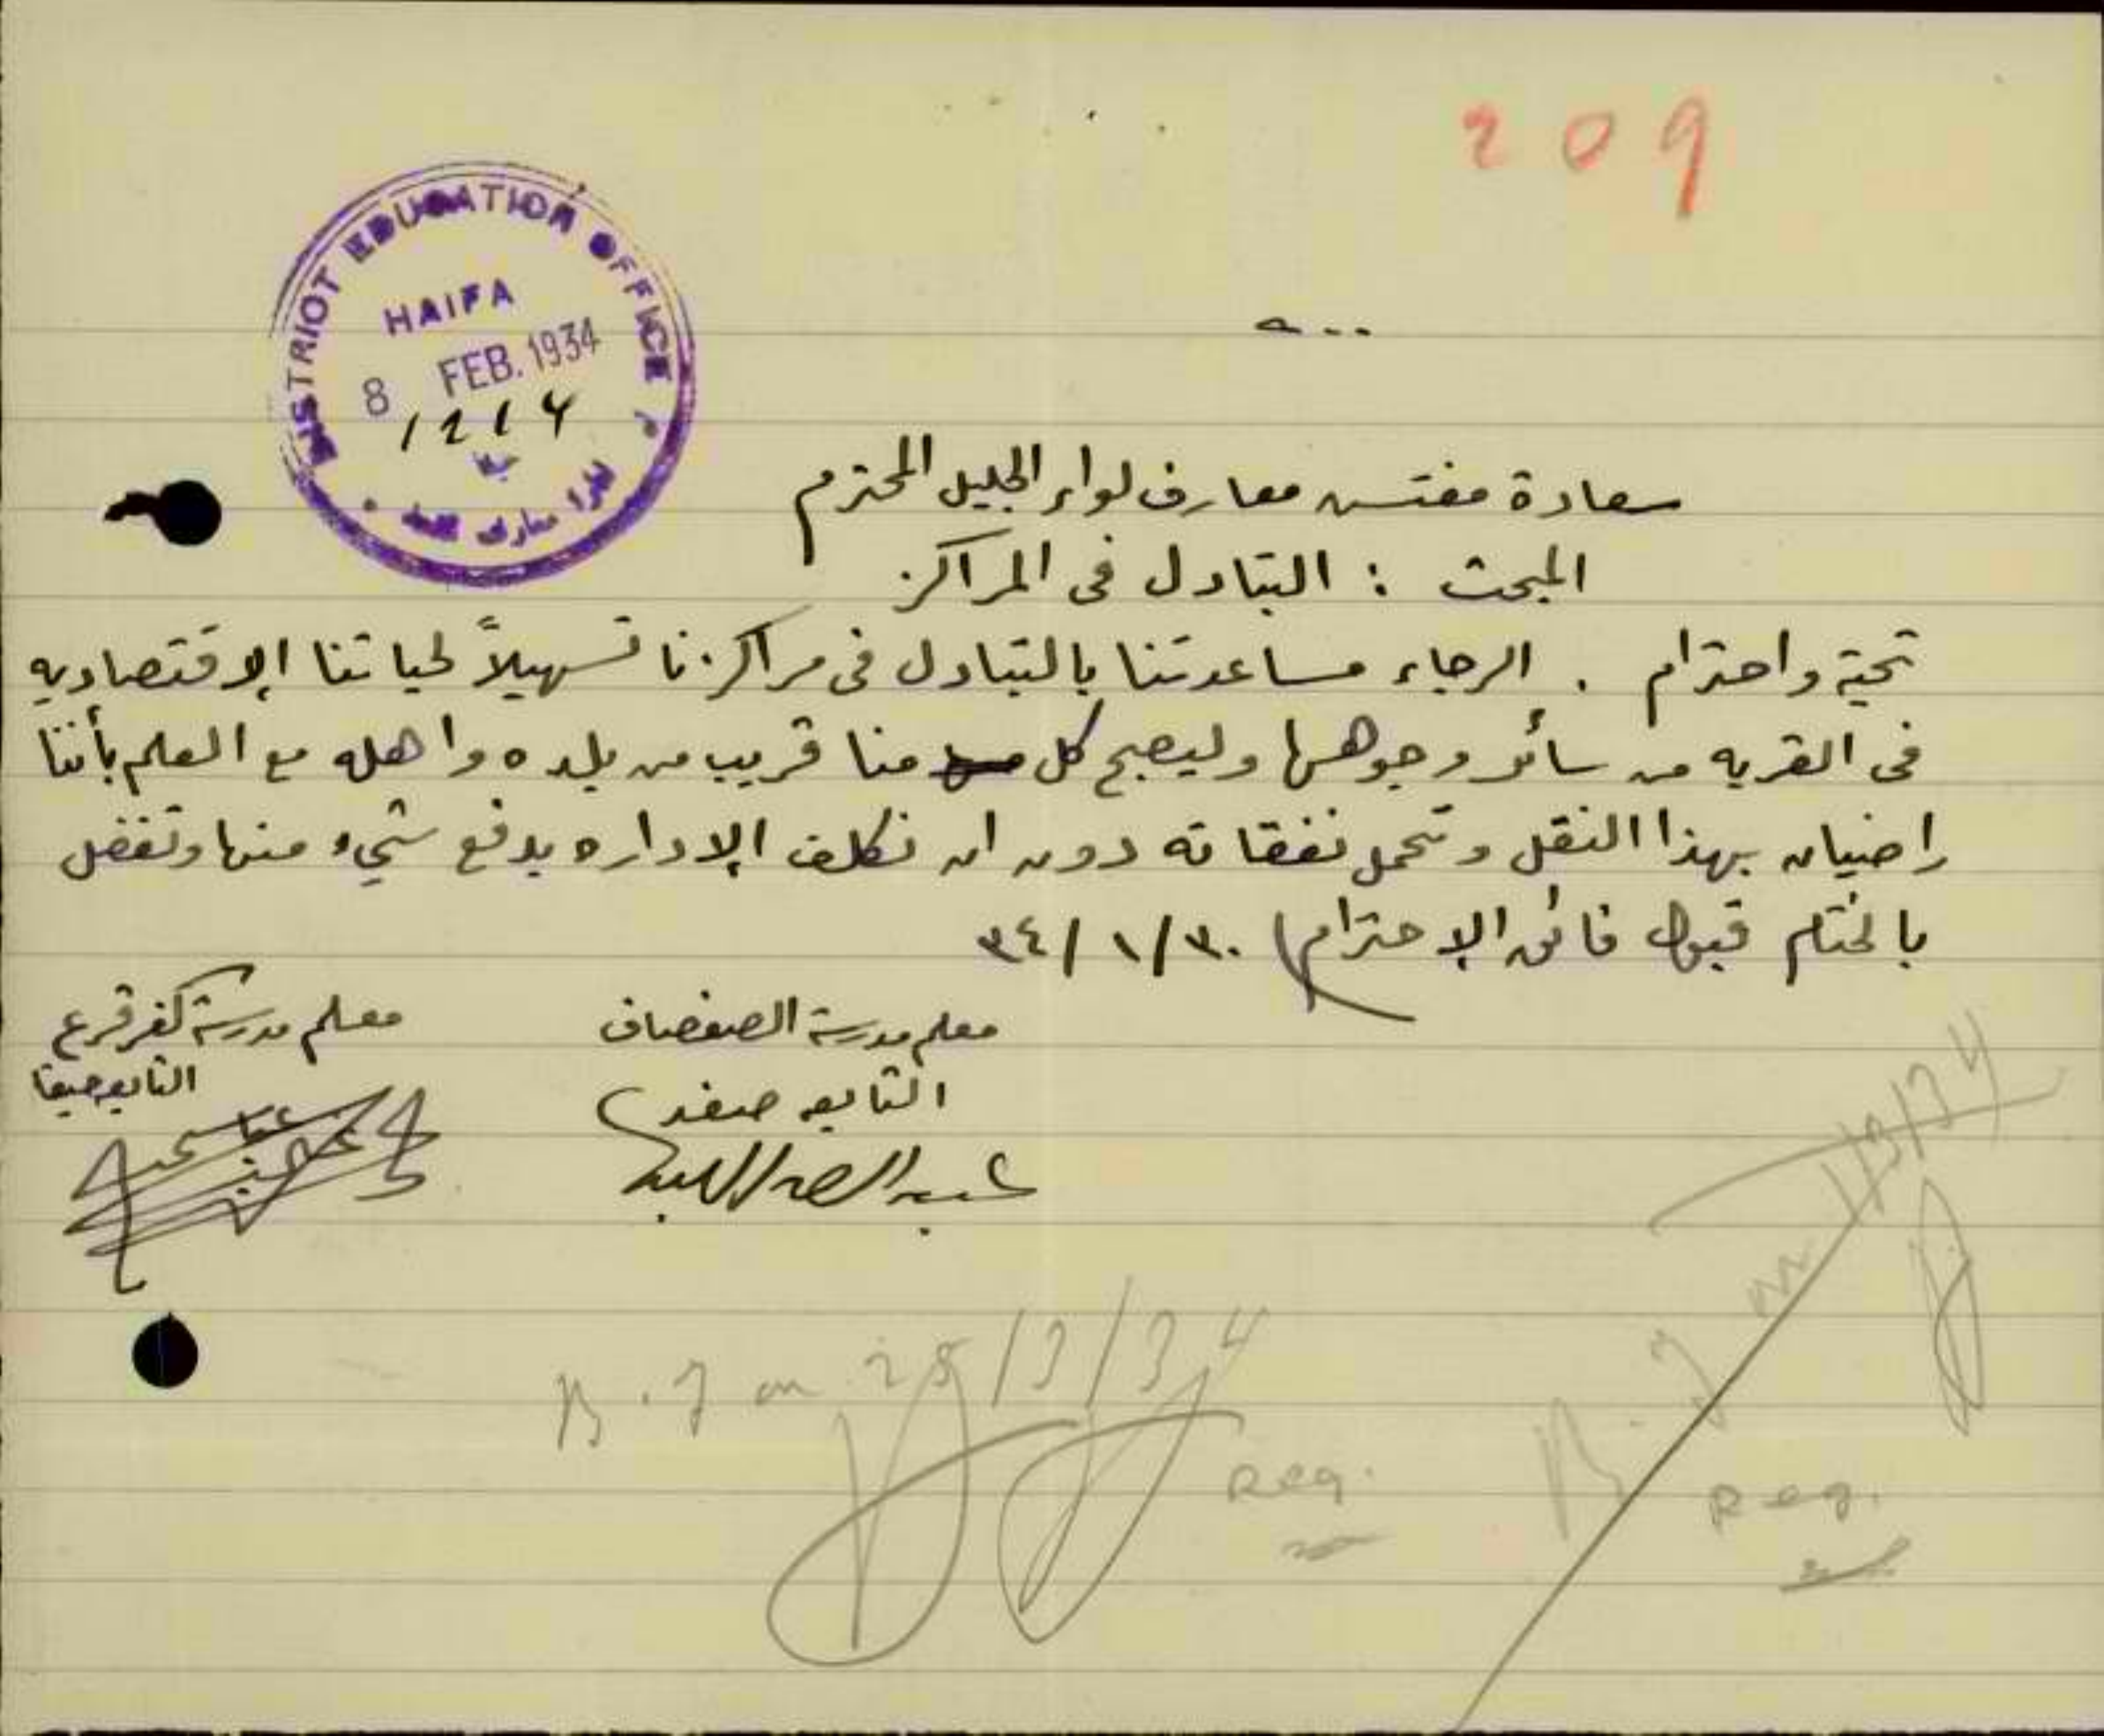 209
DISTRICT EDUCATION OFFICE
HAIFA
8 FEB. 1934
1214
سعادة مفتش معارف لواء الجليل المحترم
المبحث : التبادل في المراكز
تحية واحترام . الرجاء مساعدتنا بالتبادل في مراكزنا تسهيلاً لحياتنا الإقتصاديه
في القريه من سائر وجوهها وليصبح كل منا قريب من بلده واهله مع العلم بأننا
راضيان بهذا النقل وتحمل نفقاته دون ان نكلف الإداره بدفع شيء منها وتفضل
بالختام قبول فائق الإحترام ٣٠/١/٣٤
معلم مدرسة الصفصاف
التابعه صفد
معلم مدرسة كفرقرع
التابعه حيفا
B.F on 1/3/34
Reg.
B.F on 25/3/34
Reg.